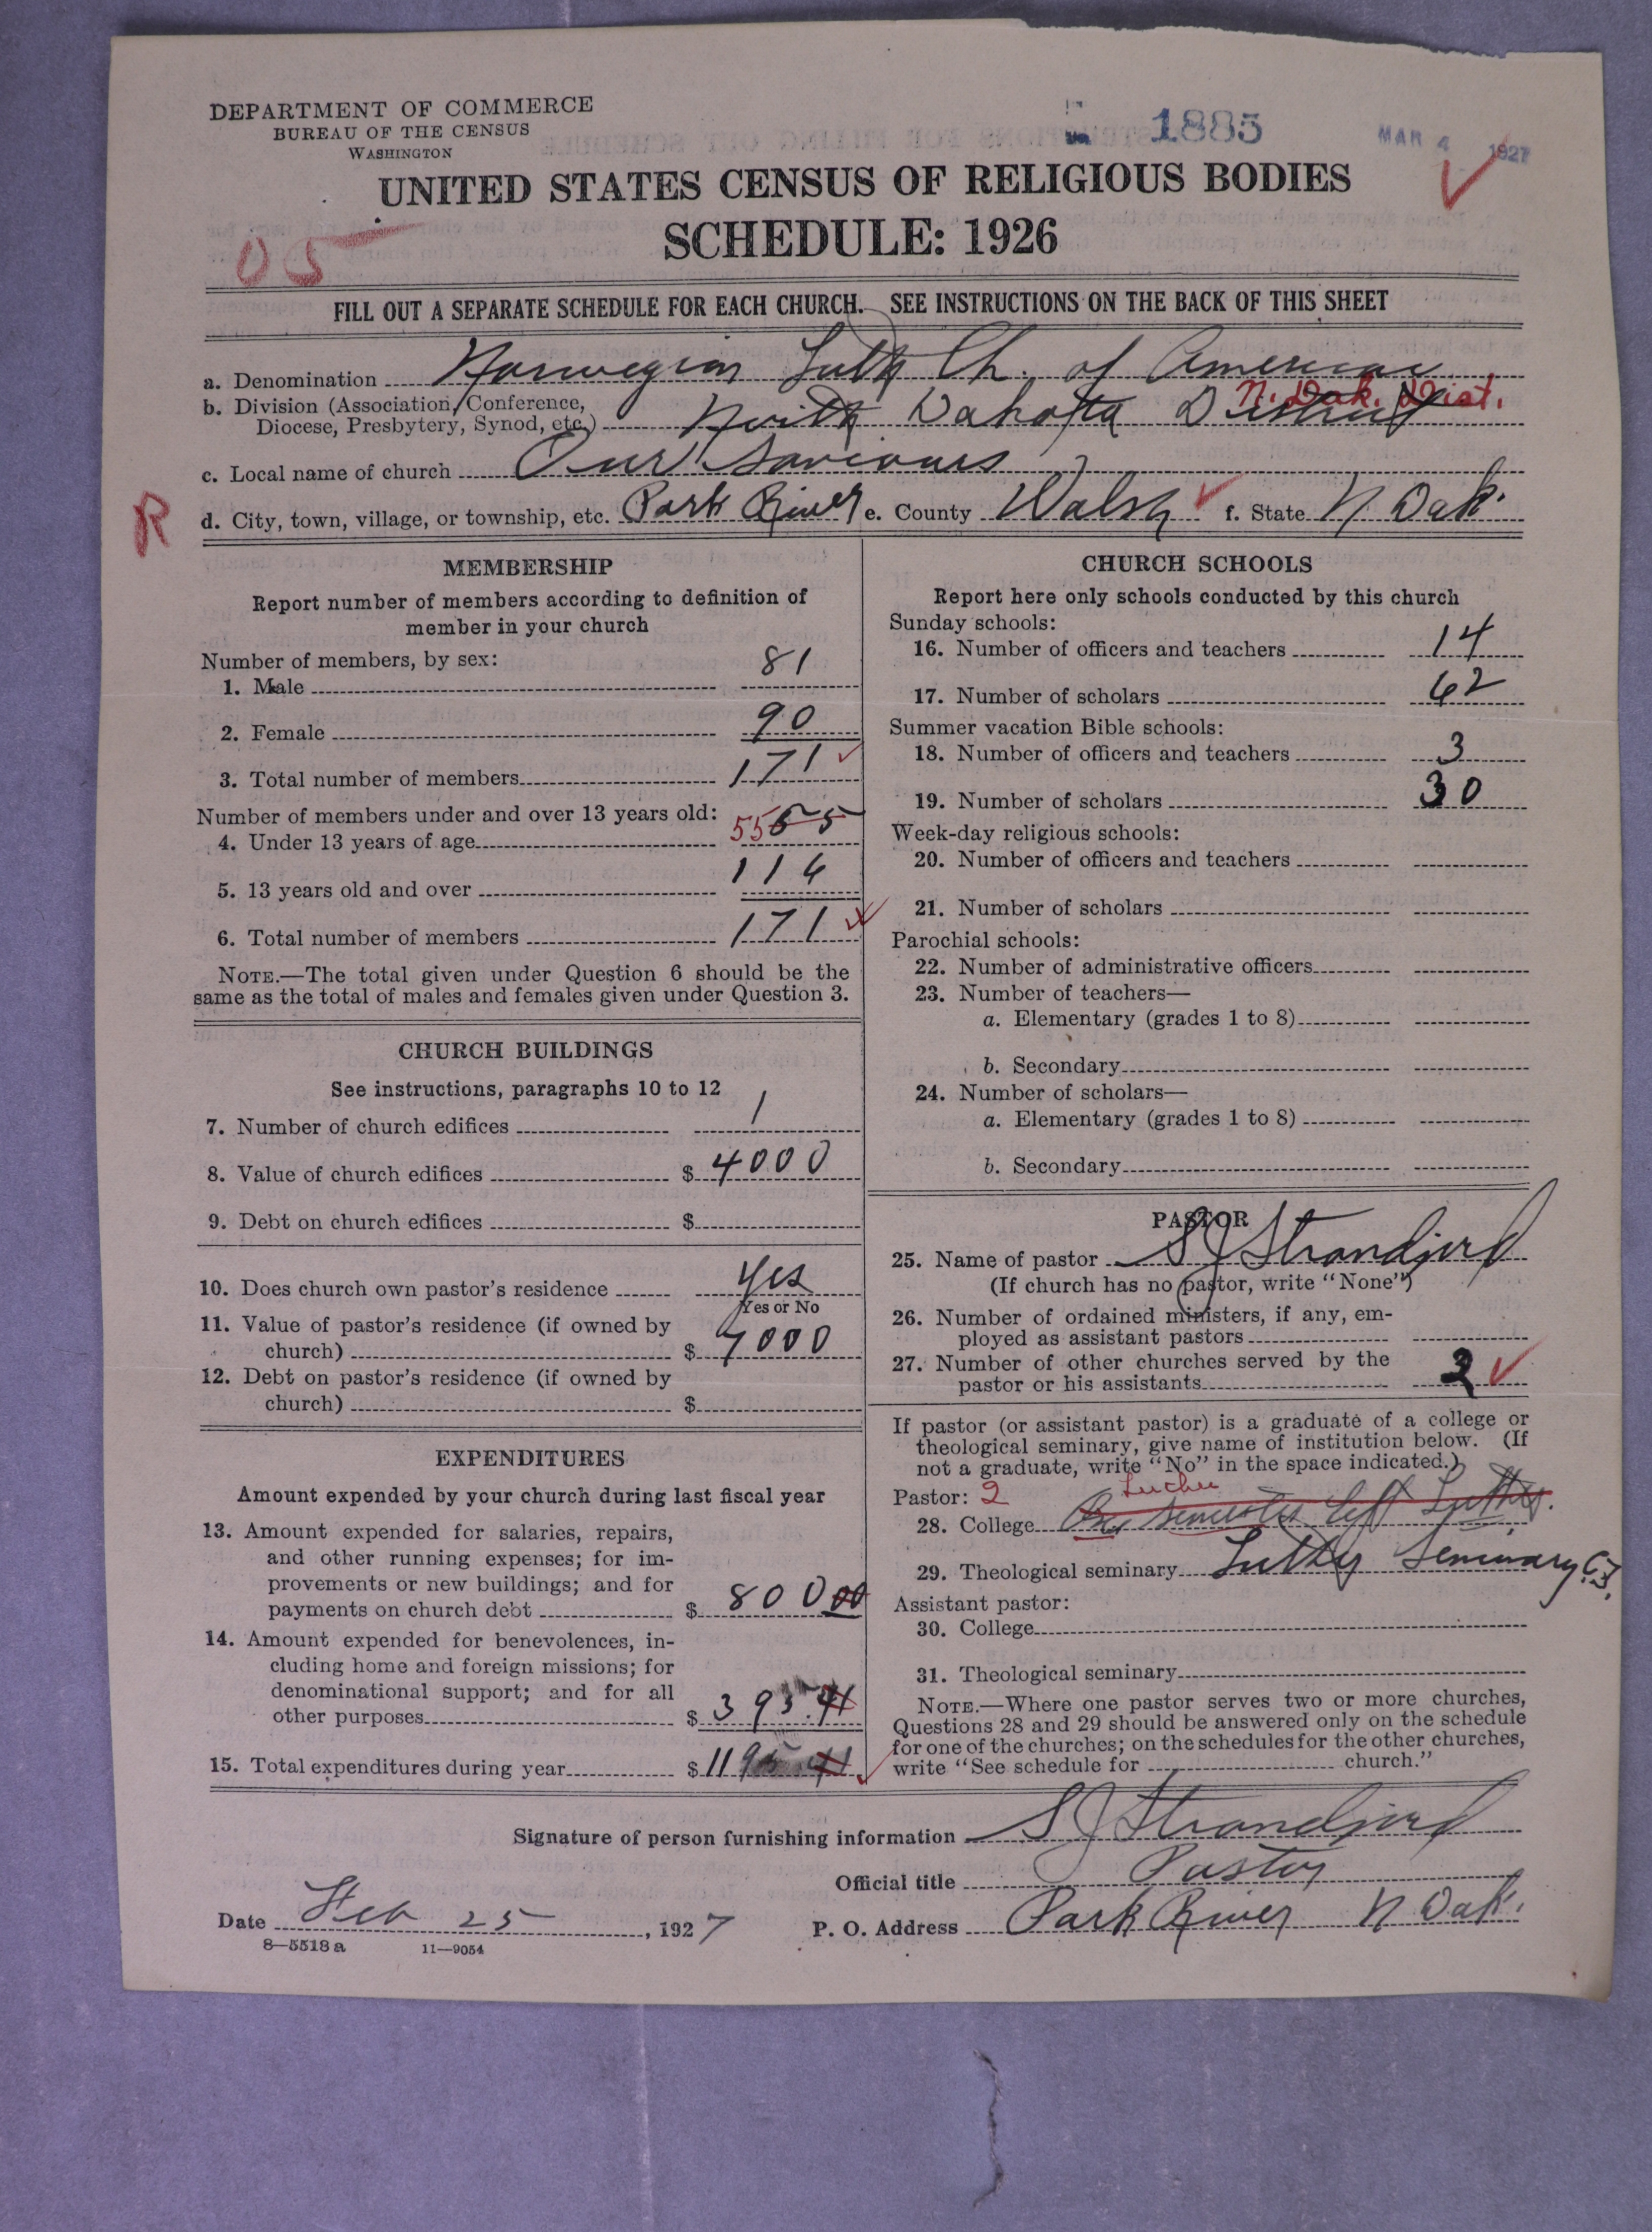 DEPARTMENT OF COMMERCE
BUREAU OF THE CENSUS
WASHINGTON
1885
MAR 4 1927
UNITED STATES CENSUS OF RELIGIOUS BODIES
SCHEDULE: 1926
05
FILL OUT A SEPARATE SCHEDULE FOR EACH CHURCH. SEE INSTRUCTIONS ON THE BACK OF THIS SHEET
a. Denomination Norwegian Luth Ch. of America
N. Dak. Dist.
b. Division (Association, Conference, Diocese, Presbytery, Synod, etc.) North Dakota District
c. Local name of church Our Saviours
R
d. City, town, village, or township, etc. Park River e. County Walsh f. State N Dak.
MEMBERSHIP
Report number of members according to definition of
member in your church
Number of members, by sex:
1. Male 81
2. Female 90
3. Total number of members 171
Number of members under and over 13 years old:
4. Under 13 years of age 55
5. 13 years old and over 116
6. Total number of members 171
NOTE.—The total given under Question 6 should be the
same as the total of males and females given under Question 3.
CHURCH BUILDINGS
See instructions, paragraphs 10 to 12
7. Number of church edifices 1
8. Value of church edifices $ 4000
9. Debt on church edifices $
10. Does church own pastor's residence Yes
Yes or No
11. Value of pastor's residence (if owned by
church) $ 7000
12. Debt on pastor's residence (if owned by
church) $
EXPENDITURES
Amount expended by your church during last fiscal year
13. Amount expended for salaries, repairs,
and other running expenses; for im-
provements or new buildings; and for
payments on church debt $ 800 00
14. Amount expended for benevolences, in-
cluding home and foreign missions; for
denominational support; and for all
other purposes $ 395.41
15. Total expenditures during year $ 1195 41
CHURCH SCHOOLS
Report here only schools conducted by this church
Sunday schools:
16. Number of officers and teachers 14
17. Number of scholars 62
Summer vacation Bible schools:
18. Number of officers and teachers 3
19. Number of scholars 30
Week-day religious schools:
20. Number of officers and teachers
21. Number of scholars
Parochial schools:
22. Number of administrative officers
23. Number of teachers—
a. Elementary (grades 1 to 8)
b. Secondary
24. Number of scholars—
a. Elementary (grades 1 to 8)
b. Secondary
PASTOR
25. Name of pastor S J Strandjord
(If church has no pastor, write "None")
26. Number of ordained ministers, if any, em-
ployed as assistant pastors
27. Number of other churches served by the
pastor or his assistants 2
If pastor (or assistant pastor) is a graduate of a college or
theological seminary, give name of institution below. (If
not a graduate, write "No" in the space indicated.)
Pastor: 2
28. College semester left Luther.
29. Theological seminary Luther Seminary
Assistant pastor:
30. College
31. Theological seminary
NOTE.—Where one pastor serves two or more churches,
Questions 28 and 29 should be answered only on the schedule
for one of the churches; on the schedules for the other churches,
write "See schedule for church."
Signature of person furnishing information S J Strandjord
Official title Pastor
Date Feb 25, 1927 P. O. Address Park River N Dak.
8—5518 a 11—9054